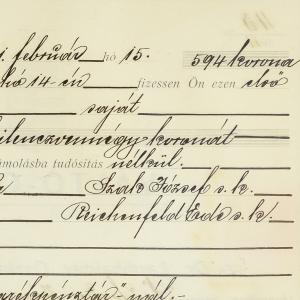 1. február hó 15. 594 korona
hó 14-én fizessen Ön ezen első
saját
ilenczvennégy koronát
ámolásba tudósítás nélkül.
Szak József s. k.
Reichenfeld Ede s. k.
takarékpénztár"-nál.-